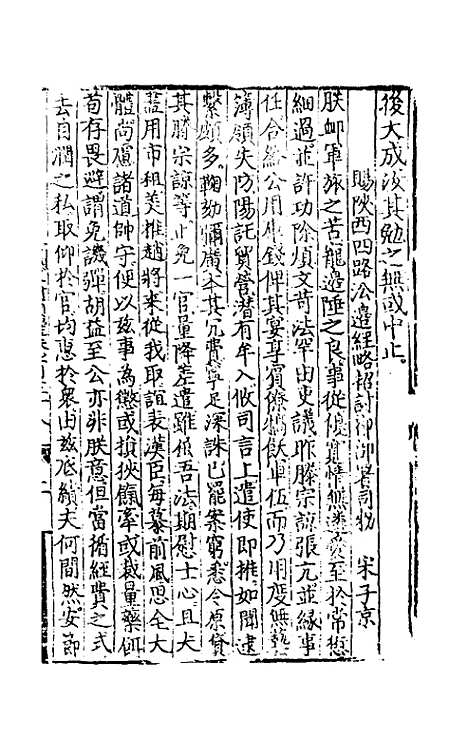 後大成汝其勉之無或中止
賜陝西四路沿邊經略招討都部署司勑　宋子京
朕卹軍旅之苦寵邊陲之良事從優實悼無
細過並許功除煩文苛法罕由吏議昨滕宗諒張亢並緣事
任合給公用庫錢俾其宴享賓僚犒飫卒伍而乃用度無藝
簿領失防陽託貿營潛有牟入攸司言上遣使即推如聞逮
繫頗多鞫劾彌廣本其冗費寧足深誅已罷案窮悉令原貸
其滕宗諒等止免一官量降差遣雖抵吾法期慰士心且犬
蓋用市租美推趙將來從我取誼表漢臣每慕前風思全大
體尚慮諸道帥守便以茲事為懲或損挾餼牽或裁量藥餌
苟存畏避謂免譏彈胡益至公亦非朕意但當循經費之式
去自潤之私取仰於官均惠於眾由茲底績夫何間然安節